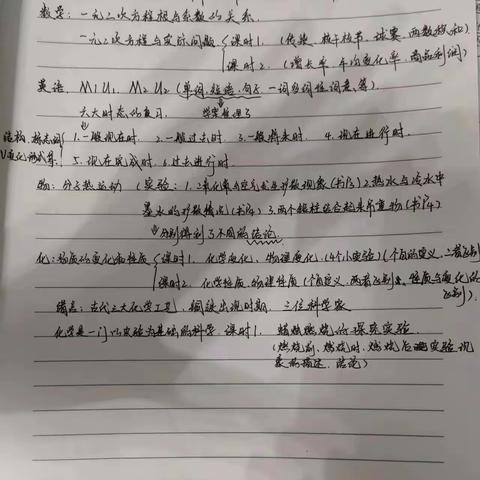 数学：一元二次方程根与系数的关系.
一元二次方程与实际问题 课时1.（传染、枝干枝节、球赛、两数之和）
课时2.（增长率、平均变化率、商品利润）
英语. M1U1. M2U2（单词、短语、句子、一词多词性词走、等）
六大时态的复习. 学案整理了
结构、标志词 1.一般现在时. 2.一般过去时. 3.一般将来时. 4.现在进行时.
V变化形式等. 5.现在完成时. 6.过去进行时.
物：分子热运动（实验：1.二氧化氮与空气或扩散现象(书P3) 2.热水与冷水中
墨水的扩散情况(书P4) 3.两个铅柱结合起来吊重物(书P4)
分别得到了不同的结论.
化：物质的变化和性质 课时1. 化学变化、物理变化.(4个小实验)(个自的定义、二者区别
课时2. 化学性质.物理性质（个自定义、两者区别、性质与变化的区别）.
绪言：古代三大化学工艺，铜铁出现时期，三位科学家
化学是一门以实验为基础的科学 课时1. 蜡烛燃烧的探究实验.
（燃烧前、燃烧时、燃烧后实验现
象的描述、结论）